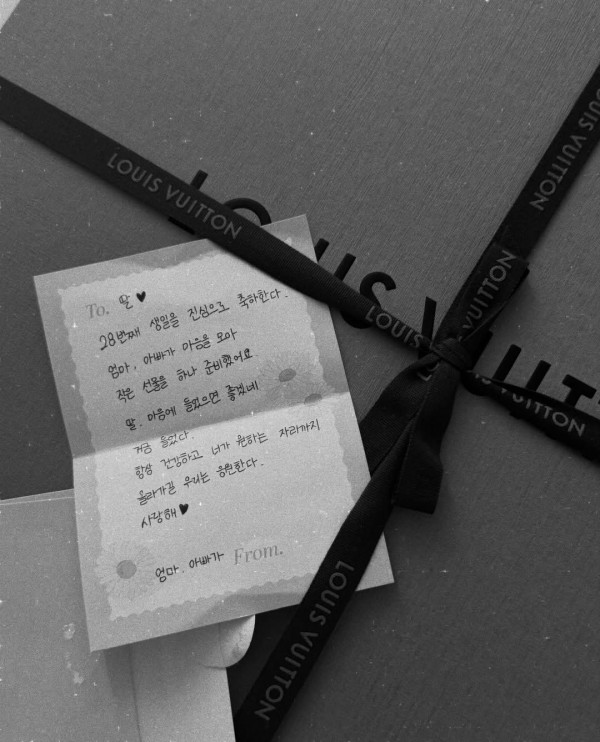 LOUIS VUITTON
LOUIS VUITTON
LOUIS VUITTON
VUITTON
LOUIS
VUITTON
LOUIS VUITTON
To. 딸♥
28번째 생일을 진심으로 축하한다.
엄마, 아빠가 마음을 모아
작은 선물을 하나 준비했어요
딸. 마음에 들었으면 좋겠네
항상 건강하고 너가 원하는 자리까지
올라가길 우리는 응원한다.
사랑해♥
엄마. 아빠가 From.